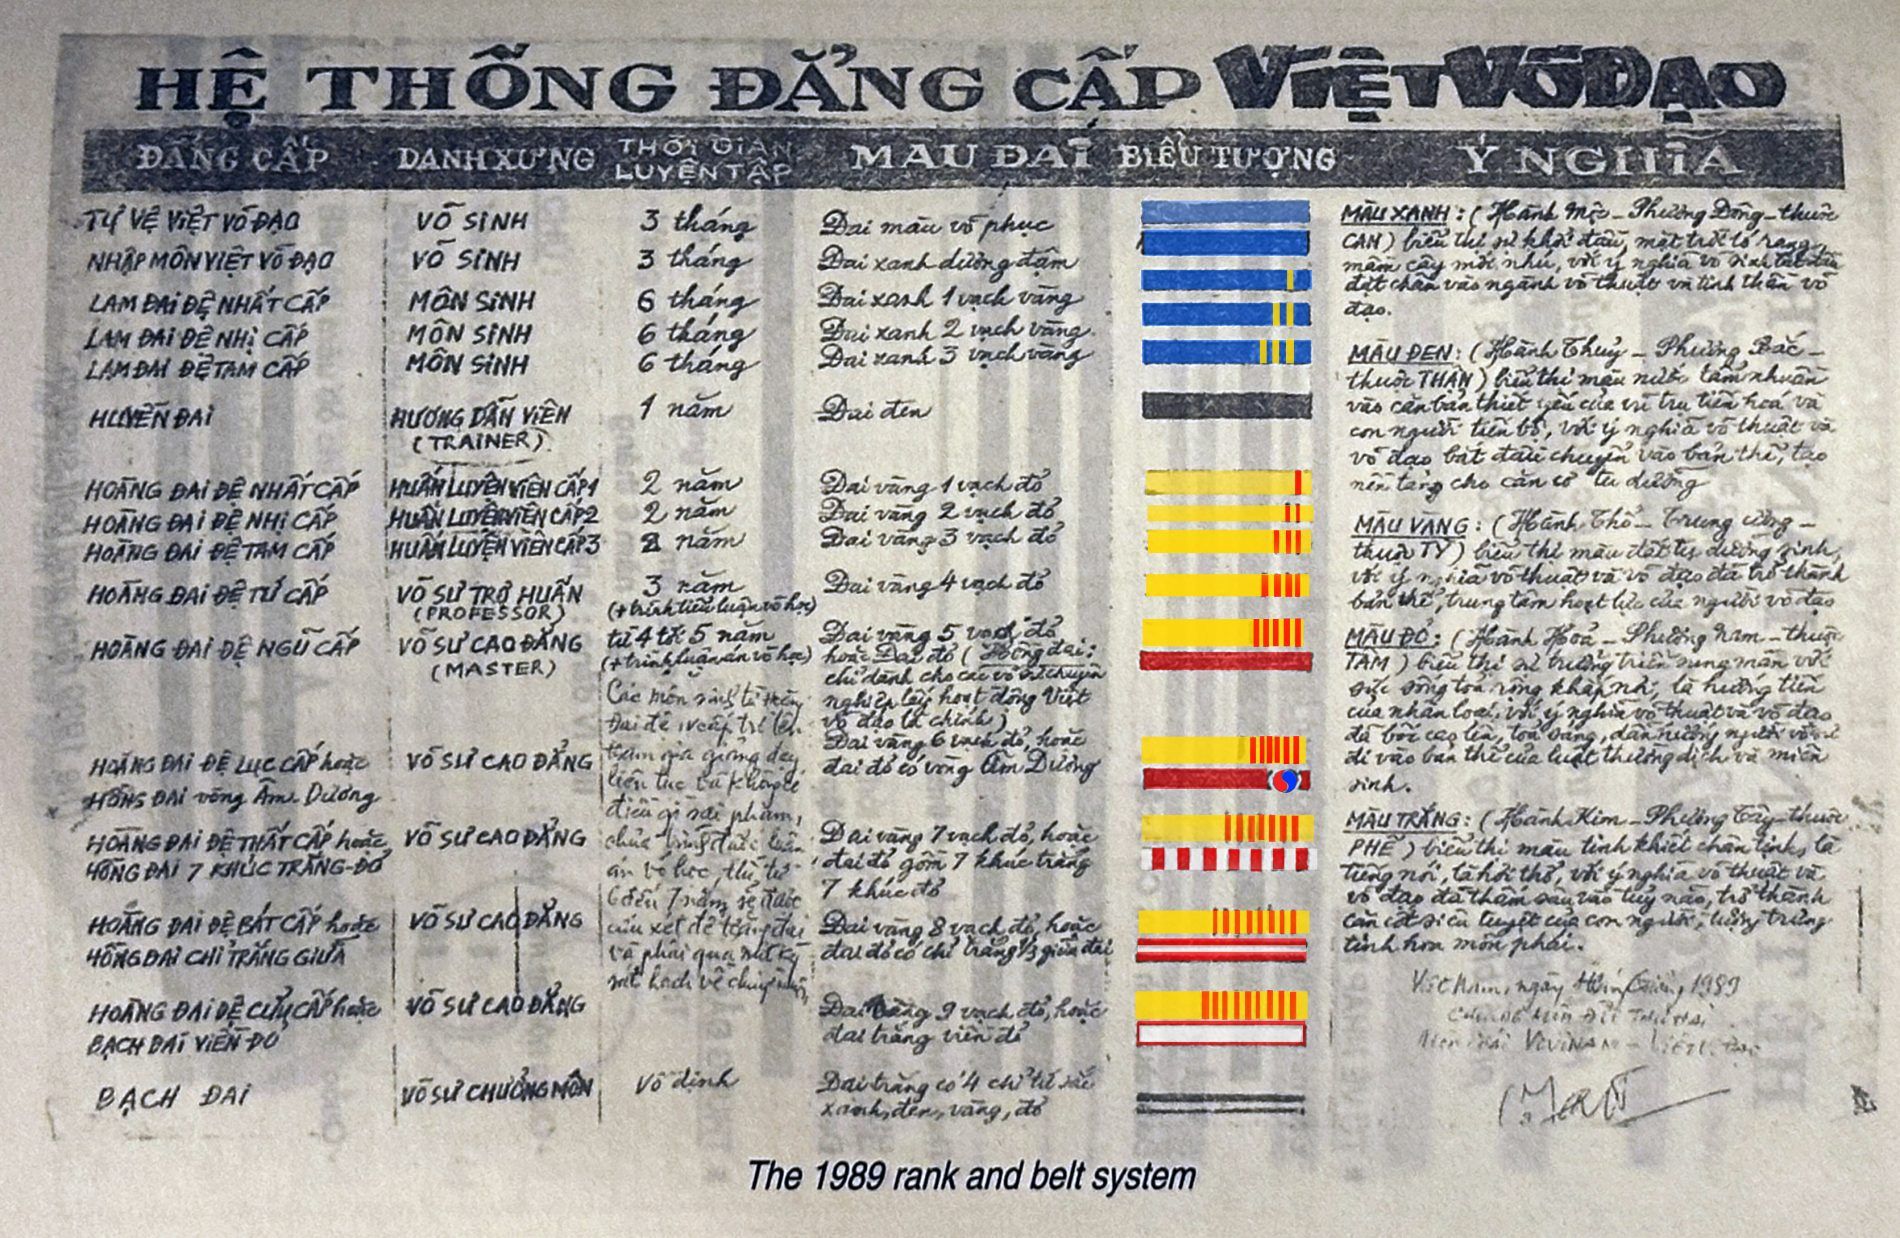 HỆ THỐNG ĐẲNG CẤP VIỆT VÕ ĐẠO
ĐẲNG CẤP DANH XƯNG THỜI GIAN LUYỆN TẬP MÀU ĐAI BIỂU TƯỢNG Ý NGHĨA
TỰ VỆ VIỆT VÕ ĐẠO VÕ SINH 3 tháng Đai màu võ phục
NHẬP MÔN VIỆT VÕ ĐẠO VÕ SINH 3 tháng Đai xanh dương đậm
LAM ĐAI ĐỆ NHẤT CẤP MÔN SINH 6 tháng Đai xanh 1 vạch vàng
LAM ĐAI ĐỆ NHỊ CẤP MÔN SINH 6 tháng Đai xanh 2 vạch vàng
LAM ĐAI ĐỆ TAM CẤP MÔN SINH 6 tháng Đai xanh 3 vạch vàng
HUYỀN ĐAI HƯỚNG DẪN VIÊN 1 năm Đai đen
(TRAINER)
HOÀNG ĐAI ĐỆ NHẤT CẤP HUẤN LUYỆN VIÊN CẤP 1 2 năm Đai vàng 1 vạch đỏ
HOÀNG ĐAI ĐỆ NHỊ CẤP HUẤN LUYỆN VIÊN CẤP 2 2 năm Đai vàng 2 vạch đỏ
HOÀNG ĐAI ĐỆ TAM CẤP HUẤN LUYỆN VIÊN CẤP 3 2 năm Đai vàng 3 vạch đỏ
HOÀNG ĐAI ĐỆ TỨ CẤP VÕ SƯ TRỢ HUẤN 3 năm Đai vàng 4 vạch đỏ
(PROFESSOR) (+ trình tiểu luận võ học)
HOÀNG ĐAI ĐỆ NGŨ CẤP VÕ SƯ CAO ĐẲNG từ 4 tới 5 năm Đai vàng 5 vạch đỏ
(MASTER) (+ trình luận án võ học) hoặc Đai đỏ (Hồng đai:
chỉ dành cho các võ sư chuyên
nghiệp lấy hoạt động Việt
võ đạo là chính)
HOÀNG ĐAI ĐỆ LỤC CẤP hoặc VÕ SƯ CAO ĐẲNG Đai vàng 6 vạch đỏ, hoặc
HỒNG ĐAI vòng Âm Dương đai đỏ có vòng Âm Dương
HOÀNG ĐAI ĐỆ THẤT CẤP hoặc VÕ SƯ CAO ĐẲNG Đai vàng 7 vạch đỏ, hoặc
HỒNG ĐAI 7 KHÚC TRẮNG-ĐỎ đai đỏ gồm 7 khúc trắng
7 khúc đỏ
HOÀNG ĐAI ĐỆ BÁT CẤP hoặc VÕ SƯ CAO ĐẲNG Đai vàng 8 vạch đỏ, hoặc
HỒNG ĐAI CHỈ TRẮNG GIỮA đai đỏ có chỉ trắng 1/3 giữa đai
HOÀNG ĐAI ĐỆ CỬU CẤP hoặc VÕ SƯ CAO ĐẲNG Đai vàng 9 vạch đỏ, hoặc
BẠCH ĐAI VIỀN ĐỎ đai trắng viền đỏ
BẠCH ĐAI VÕ SƯ CHƯỞNG MÔN Vô định Đai trắng có 4 chỉ tứ sắc
xanh, đen, vàng, đỏ
MÀU XANH: (Hành Mộc - Phương Đông - thuộc
CAN) biểu thị sự khởi đầu, mặt trời tỏ rạng,
mầm cây mới nhú, với ý nghĩa võ sinh bắt đầu
đặt chân vào ngành võ thuật và tinh thần võ
đạo.
MÀU ĐEN: (Hành Thuỷ - Phương Bắc -
thuộc THẬN) biểu thị màu nước tẩm nhuần
vào căn bản thiết yếu của vũ trụ tiến hoá và
con người tiến bộ, với ý nghĩa võ thuật và
võ đạo bắt đầu chuyển vào bản thể, tạo
nền tảng cho căn cơ tu dưỡng
MÀU VÀNG: (Hành Thổ - Trung ương -
thuộc TỲ) biểu thị màu đất tự dưỡng sinh,
với ý nghĩa võ thuật và võ đạo đã trở thành
bản thể, trung tâm hoạt lực của người võ đạo
MÀU ĐỎ: (Hành Hoả - Phương Nam - thuộc
TÂM) biểu thị sự trưởng triển sung mãn với
sức sống toả rộng khắp nơi, là hướng tiến
của nhân loại, với ý nghĩa võ thuật và võ đạo
đã bốc cao lên, toả sáng, dẫn hướng người võ sĩ
đi vào bản thể của luật thường dịch và miên
sinh.
MÀU TRẮNG: (Hành Kim - Phương Tây - thuộc
PHẾ) biểu thị màu tinh khiết chân tịnh, là
tiếng nói, là hơi thở, với ý nghĩa võ thuật và
võ đạo đã thấm sâu vào tuỷ não, trở thành
căn cốt siêu tuyệt của con người, tượng trưng
tinh hoa môn phái.
Việt Nam, ngày 1989
The 1989 rank and belt system